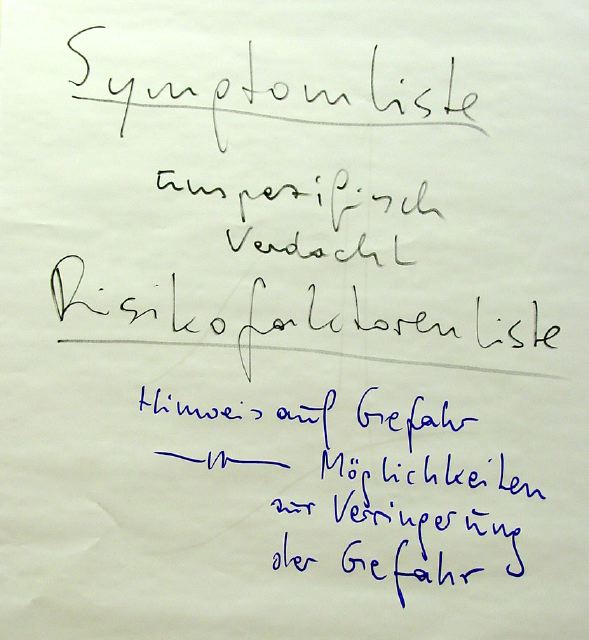 Symptomliste
unspezifisch
Verdacht
Risikofaktorenliste
Hinweis auf Gefahr
—〃— Möglichkeiten
zur Verringerung
der Gefahr